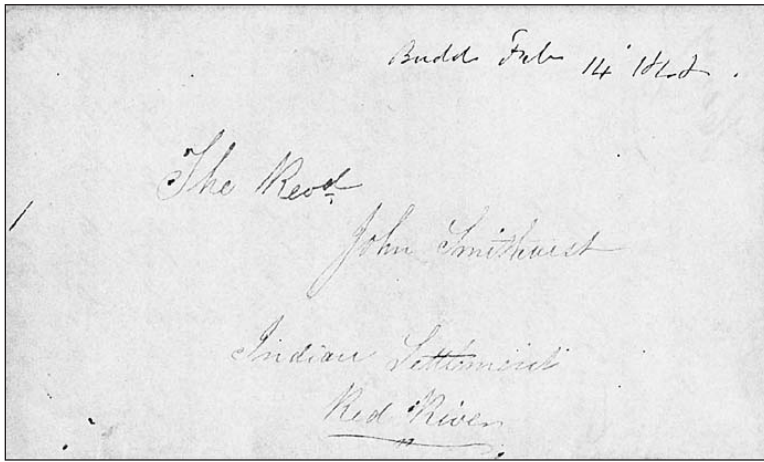 Budd Feb 14
The Revd
John Smithurst
Indian Settlement
Red River